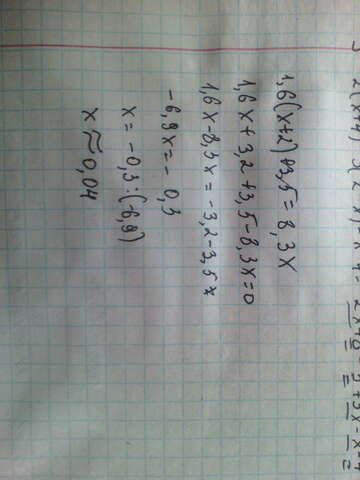 1,6(x+2)+3,5=8,3x
1,6x+3,2+3,5-8,3x=0
1,6x-8,3x=-3,2-3,5x
-6,9x=-0,3
x=-0,3:(-6,9)
x≈0,04